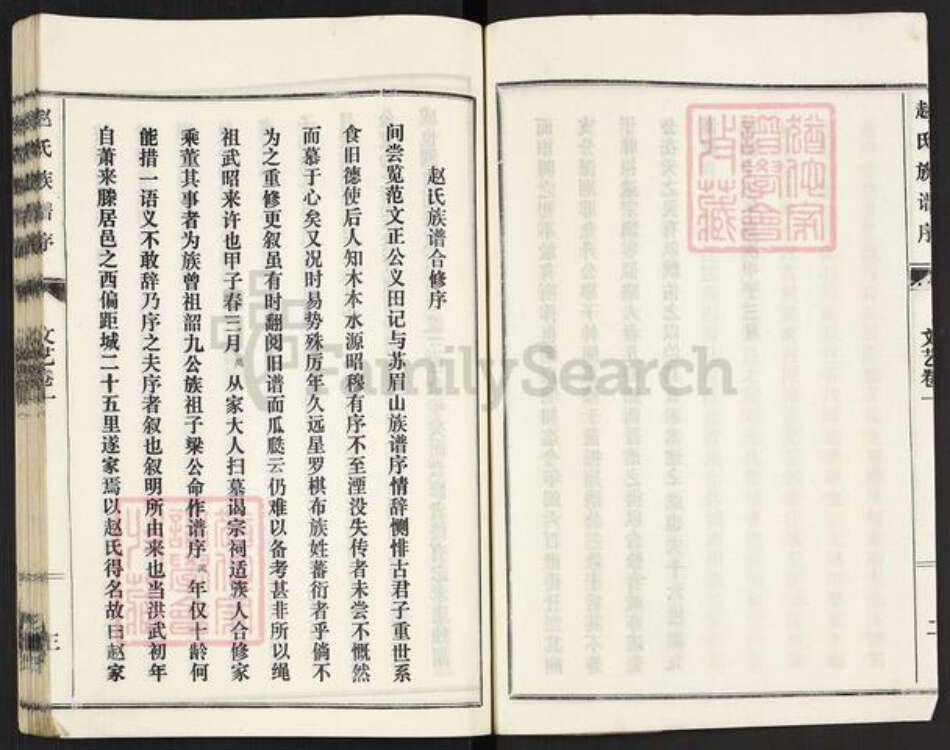 赵氏族谱序
文艺卷一
二
赵氏族谱合修序
间尝览范文正公义田记与苏眉山族谱序情辞恻悱古君子重世系
食旧德使后人知木本水源昭穆有序不至湮没失传者未尝不慨然
而慕于心矣又况时易势殊历年久远星罗棋布族姓蕃衍者乎倘不
为之重修更叙虽有时翻阅旧谱而瓜瓞云仍难以备考甚非所以绳
祖武昭来许也甲子春三月 从家大人扫墓谒宗祠适族人合修家
乘董其事者为族曾祖韶九公族祖子梁公命作谱序 年仅十龄何
能措一语义不敢辞乃序之夫序者叙也叙明所由来也当洪武初年
自萧来滕居邑之西偏距城二十五里遂家焉以赵氏得名故曰赵家
赵氏族谱序
文艺卷一
三
FamilySearch